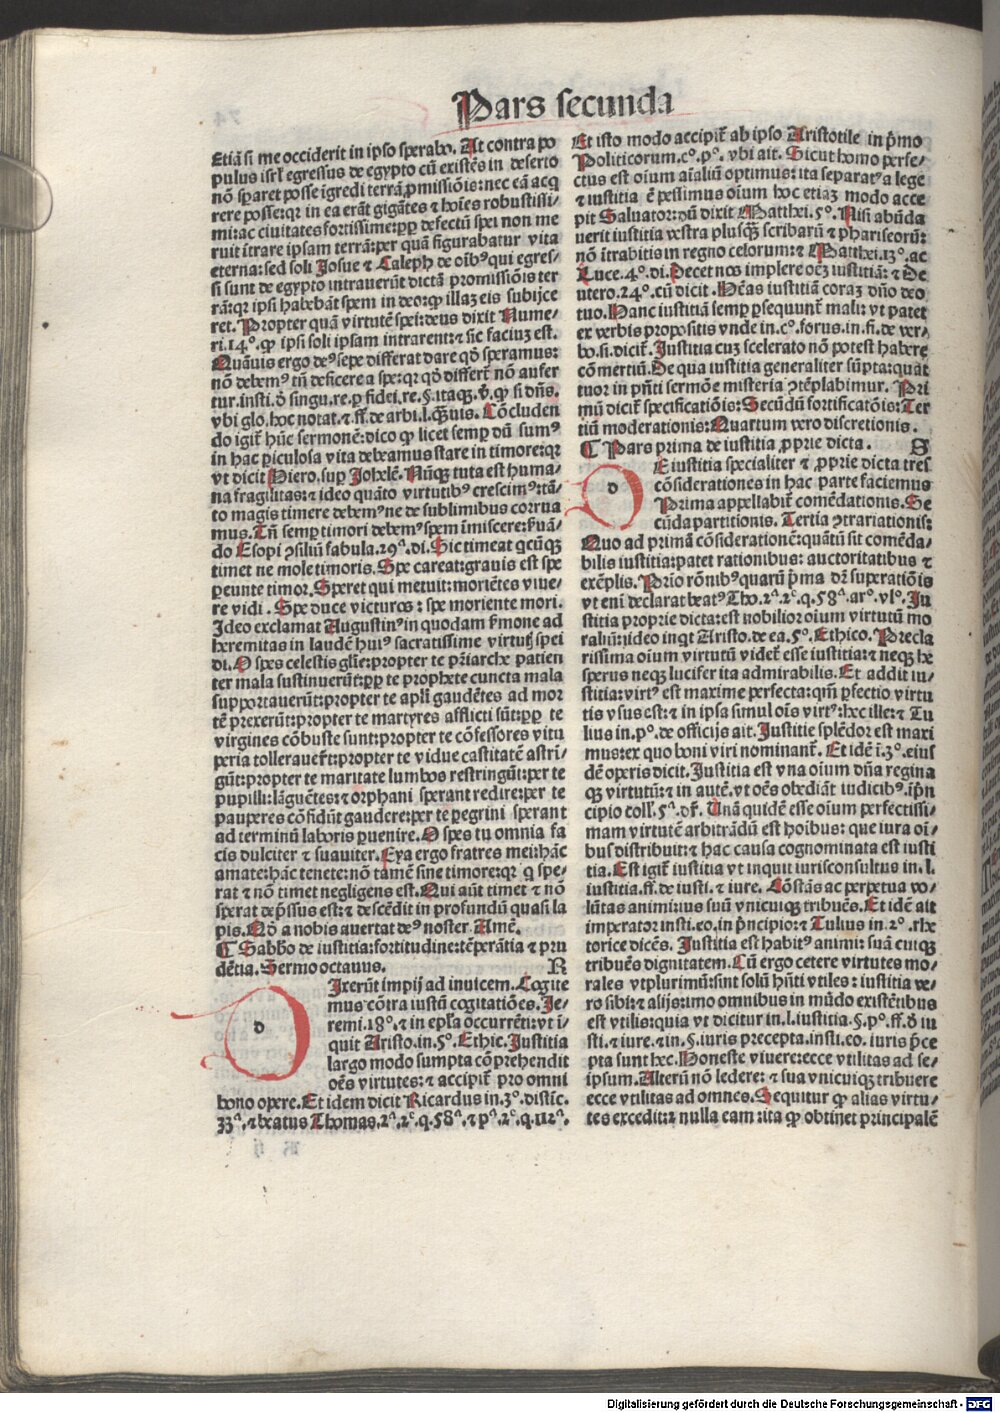 Pars secunda
Etiā si me occiderit in ipso sperabo. At contra po
pulus isrl egressus de egypto cū existēs in deserto
nō sparet posse īgredi terrā ꝓmissiōis: nec eā acq
rere posse: qr in ea erāt gigātes ⁊ hoīes robustissi/
mi: ac ciuitates fortissime: ꝓpꝑ defectū spei non me
ruit ītrare ipsam terrā: per quā figurabatur vita
eterna: sed soli Josue ⁊ Caleph de oībꝰ qui egres/
si sunt de egypto intrauerūt dictā promissiōis ter
rā: qr ipsi habebāt spem in deo: ꝙ illaz eis subijce
ret. Propter quā virtutē spei: deus dixit Nume/
ri. 14°. ꝙ ipsi soli ipsam intrarent: ⁊ sic faciuz est.
Quāuis ergo deꝰ sepe differat dare qd̄ speramus:
nō debemꝰ tn̄ deficere a spe: qr qd̄ differt̄ nō aufer
tur. insti. d̄ singu. re. ꝑ fidei. re. §. itaqꝫ. v̄. ꝙ si dn̄s.
vbi glo. hoc notat. ⁊ ff. de arbi. l. qꝫuis. Cōcluden
do igit̄ hūc sermonē: dico ꝙ licet semꝑ dū sumꝰ
in hac ꝑiculosa vita debeamus stare in timore: qr
vt dicit Piero. suꝑ Johelē. Nūqꝫ tuta est huma/
na fragilitas: ⁊ ideo quāto virtutibꝰ crescimꝰ: tā/
to magis timere debemꝰ ne de sublimibus corrua
mus. Tn̄ semꝑ timori debemꝰ spem īmiscere: ẜuā/
do Esopi ꝯsiliū fabula. 29ᵃ. di. Sic timeat qcūqꝫ
timet ne mole timoris. Spe careat: grauis est spe
ꝑeunte timor. Speret qui metuit: moriētes viue/
re vidi. Spe duce victuros: spe moriente mori.
Ideo exclamat Augustinꝰ in quodam ẜmone ad
heremitas in laudē huiꝰ sacratissime virtutꝭ spei
di. O spes celestis glīe: propter te pr̄iarche patien
ter mala sustinuerūt: ꝓpꝑ te prophete cuncta mala
supportauerūt: propter te apl̄i gaudētes ad mor
tē prexerūt: propter te martyres afflicti sūt: ꝓpꝑ te
virgines cōbuste sunt: propter te cōfessores vitu
peria tollerauer̄t: propter te vidue castitatē astrī/
gūt: propter te maritate lumbos restringūt: per te
pupilli: lāguētes: ⁊ orphani sperant redire: per te
pauperes cōfidūt gaudere: per te ꝑegrini sperant
ad terminū laboris ꝑuenire. O spes tu omnia fa
cis dulciter ⁊ suauiter. Eya ergo fratres mei: hāc
amate: hāc tenete: nō tamē sine timore: qr q spe/
rat ⁊ nō timet negligens est. Qui aūt timet ⁊ nō
sperat dep̄ssus est: ⁊ descēdit in profundū quasi la
pis. Qd̄ a nobis auertat deꝰ noster. Amē.
¶ Sabb̄o de iustitia: fortitudine: tēperātia ⁊ pru
dētia. Sermo octauus. R
d Ixerūt impij ad inuicem. Cogite
mus cōtra iustū cogitatiōes. Je/
remi. 18°. ⁊ in epl̄a occurrēti: vt ī/
quit Aristo. in. 5°. Ethic. Justitia
largo modo sumpta cōprehendit
oēs virtutes: ⁊ accipit̄ pro omni
bono opere. Et idem dicit Ricardus in. 3°. distīc.
33ᵃ. ⁊ beatus Thomas. 2ᵃ. 2ᶜ. q. 58ᵃ. ⁊ pᵃ. 2ᶜ. q. 112ᵃ.
Et isto modo accipit̄ ab ipso Aristotile in p̄mo
Politicorum. c°. p°. vbi ait. Sicut homo perfe/
ctus est oīum aīaliū optimus: ita separatꝰ a lege
⁊ iustitia ē pessimus oīum hoc etiaz modo acce
pit Saluator: dū dixit Matthei. 5°. Nisi abūda
uerit iustitia vestra plusqꝫ scribarū ⁊ phariseorū:
nō ītrabitis in regno celorum: ⁊ Matthei. 13°. ac
Luce. 4°. di. Decet nos implere oēz iustitiā: ⁊ De
utero. 24°. cū dicit. Hēas iustitiā coraz dn̄o deo
tuo. Hanc iustitiā semꝑ ꝑsequunt̄ mali: vt patet
ex verbis propositis vnde in. c°. forus. in. fi. de ver/
bo. si. dicit̄. Justitia cuz scelerato nō potest habere
cōmertiū. De qua iustitia generaliter sūpta: quat
tuor in pn̄ti sermōe misteria ꝯtēplabimur. Pri
mū dicit̄ specificatiōis: Secūdū fortificatōis: Ter
tiū moderationis: Quartum vero discretionis.
¶ Pars prima de iustitia ꝓprie dicta. S
d E iustitia specialiter ⁊ ꝓprie dicta tres
cōsiderationes in hac parte faciemus
Prima appellabit̄ comēdationis. Se
cūda partitionis. Tertia ꝯtrariationis:
Quo ad primā cōsiderationē: quātū sit comēda/
bilis iustitia: patet rationibus: auctoritatibus ⁊
exēplis. Prīo rōnibꝰ quarū p̄ma dr̄ superatiōis
vt enī declarat beatꝰ Tho. 2ᵃ. 2ᶜ. q. 58ᵃ. ar°. vl°. Ju
stitia proprie dicta: est nobilior oīum virtutū mo
raliū: ideo inqt Aristo. de ea. 5°. Ethico. Precla
rissima oīum virtutū videt̄ esse iustitia: ⁊ neqꝫ he
sperus neqꝫ lucifer ita admirabilis. Et addit iu/
stitia: virtꝰ est maxime perfecta: qm̄ ꝑfectio virtu
tis vsus est: ⁊ in ipsa simul oīs virtꝰ: hec ille: ⁊ Tu
lius in. p°. de officijs ait. Justitie splēdor est maxi
mus: ex quo boni viri nominant̄. Et idē ī. 3°. eius
dē operis dicit. Justitia est vna oīum dn̄a regina
qꝫ virtutū: ⁊ in autē. vt oēs obediāt iudicibꝰ. ip̄n
cipio coll̄. 5ᵃ. dr̄. Unā quidē esse oīum perfectissi/
mam virtutē arbitrādū est hoībus: que iura oī/
bus distribuit: ⁊ hac causa cognominata est iusti
tia. Est igit̄ iustitia vt inquit iurisconsultus in. l.
iustitia. ff. de iusti. ⁊ iure. Cōstās ac perpetua vo/
lūtas animi: ius suū vnicuiqꝫ tribuēs. Et idē ait
imperator insti. eo. in p̄ncipio: ⁊ Tulus in. 2°. rhe
torice dicēs. Justitia est habitꝰ animi: suā cuiqꝫ
tribuēs dignitatem. Cū ergo cetere virtutes mo/
rales vtplurimū: sint solū hn̄ti vtiles: iustitia ve/
ro sibi: ⁊ alijs: imo omnibus in mūdo existētibus
est vtilis: quia vt dicitur in. l. iustitia. §. p°. ff. d̄ iu
sti. ⁊ iure. ⁊ in. §. iuris precepta. insti. co. iuris p̄ce
pta sunt hec. Honeste viuere: ecce vtilitas ad se/
ipsum. Alterū nō ledere: ⁊ sua vnicuiqꝫ tribuere
ecce vtilitas ad omnes. Sequitur ꝙ alias virtu/
tes excedit: ⁊ nulla eam: ita ꝙ obtinet principalē
Digitalisierung gefördert durch die Deutsche Forschungsgemeinschaft - DFG